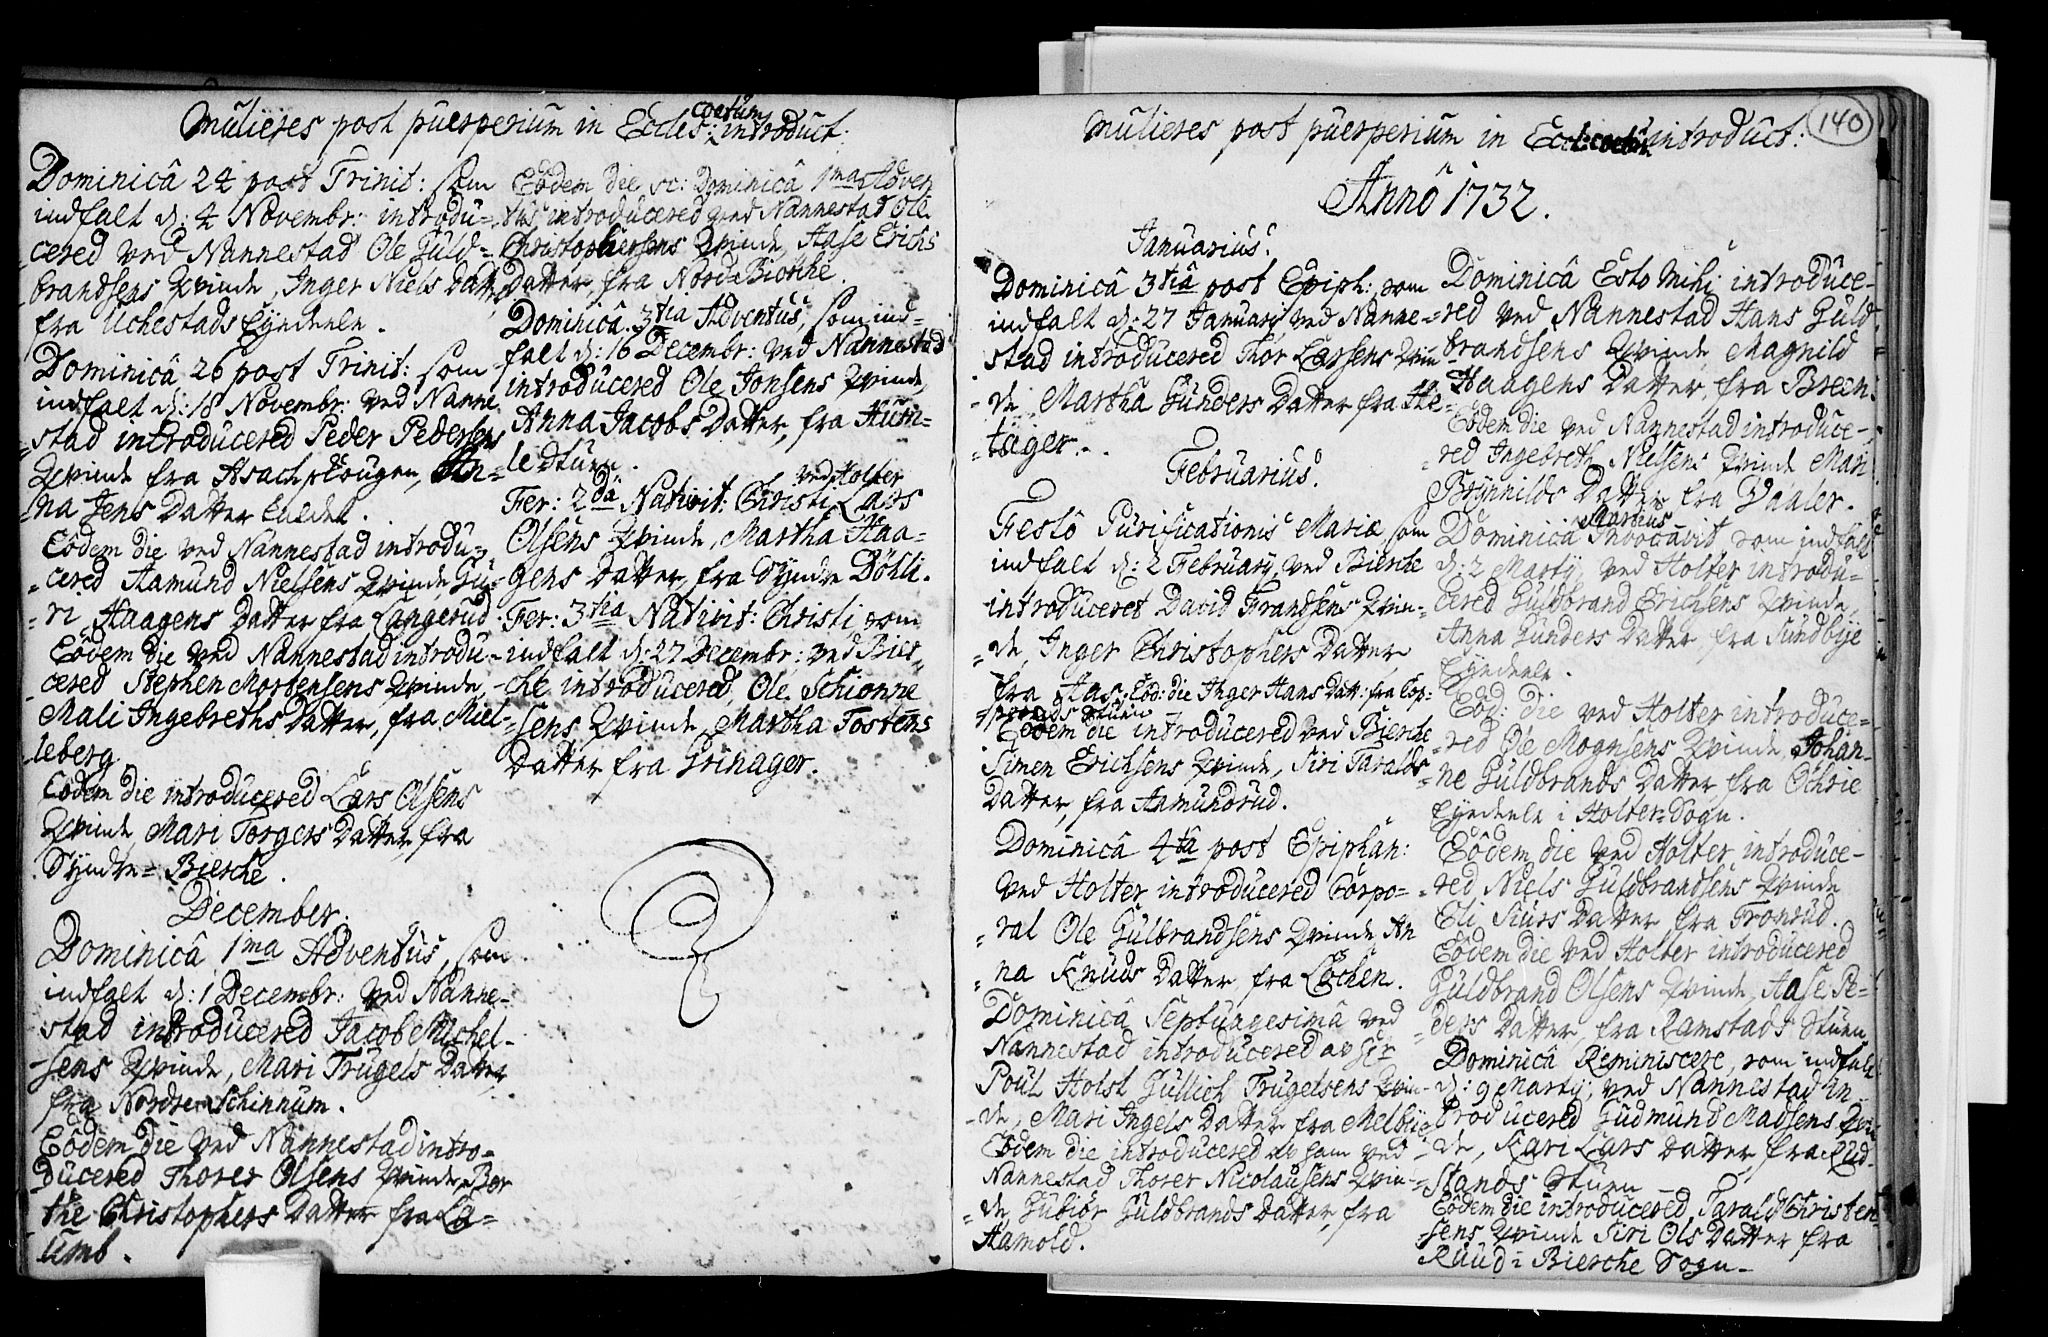 Mulieres post puerperium in Eccles: coetum introduct:
Dominicâ 24 post Trinit: som
indfalt d: 4 Novembr: introdu-
-cered ved Nannestad Ole Guld-
brandsens Qvinde, Inger Niels Datter
fra Uchestads Eyendele.
Dominicâ 26 post Trinit: som
indfalt d: 18 Novembr: ved Nanne
-stad introducered Peder Pedersens
Qvinde fra Asachskougen, An-
-na Jens Datter kaldet.
Eôdem die ved Nannestad introdu-
-cered Aamund Nielsens Qvinde, Gu-
-ri Haagens Datter fra Langerud.
Eôdem die ved Nannestad introdu-
-cered Stephen Mortensens Qvinde,
Mali Ingebreths Datter, fra Miel-
leberg
Eôdem die introducered Lars Olsens
Qvinde Mari Torgers Datter, fra
Syndre-Bierche.
December.
Dominicâ 1ma Adventûs, som
indfalt d: 1 Decembr: ved Nanne-
stad introducered Jacob Michel-
-sens Qvinde, Mari Trugels Datter
fra Nordre Schinnum.
Eôdem die ved Nannestad intro-
ducered Thorer Olsens Qvinde, Bor
the Christophers Datter fra La-
-umb.
Eôdem die sc: Dominicâ 1ma Adven
tûs introducered ved Nannestad Ole
Christophersens Qvinde, Aase Erichs
Datter, fra Nord-Bierche.
Dominicâ 3tia Adventus, som ind-
falt d: 16 Decembr: ved Nannestad
introducered Ole Jonsens Qvinde,
Anna Jacobs Datter, fra Hum-
ledtuen.
Fer: 2dâ Nativit: Christi ved Holter Lars
Olsens Qvinde, Martha Haa-
gens Datter, fra Syndre Döhli.
Fer: 3tia Nativit: Christi, som
indfalt d: 27 Decembr: ved Bier-
che introducered, Ole Schionne
-sens Qvinde, Martha Tostens
Datter fra Grinager.
140
Mulieres post puerperium in Eccl: coetum introduct:
Annô 1732.
Januarius.
Dominicâ 3tiâ post Epiph: som
indfalt d: 27 Januarij ved Nanne-
stad introducered Thor Larsens Qvin
-de, Martha Gunders Datter fra He-
-tager.
Februarius.
Festô Purificationis Mariæ, som
indfalt d: 2 February, ved Bierche
introduceret David Frandsens Qvin-
-de, Inger Christophers Datter
fra Aas. Eod: die Inger Hans Datt: fra Cop-
stuen
Eodem die introducered ved Bierche
Simen Erichsens Qvinde, Siri Taralds
Datter, fra Aamundrud.
Dominicâ 4tâ post Epiphan:
ved Holter introducered Corpo-
-ral Ole Gulbrandsens Qvinde An
-na Knuds Datter fra Lochen.
Dominicâ Septuagesimâ ved
Nannestad introducered av Hr
Poul Holst Gullich Trugelsens Qvin-
-de, Mari Ingels Datter fra Melbye
Eôdem die introducered av ham ved
Nannestad Thorer Nicolausens Qvin-
-de Gubiör Guldbrands Datter, fra
Aamold.
Dominicâ Esto Mihi introduce-
-red ved Nannestad Hans Guld
brandsens Qvinde, Magnild
Haagens Datter, fra Breen.
Eôdem die ved Nannestad introduce-
-red Ingebreth Nielsens Qvinde Mari
Brynnilds Datter fra Vaaler.
Martius
Dominicâ Invocavit som indfalt
d: 2 Martij, ved Holter introdu-
cered Guldbrand Erichsens Qvinde,
Anna Gunders Datter fra Sundbye
Eyendele.
Eôd: die ved Holter introduce-
-red Ole Mognsens Qvinde, Johan-
-ne Guldbrands Datter fra Ochrie
Eyendele i Holter-Sogn.
Eôdem die ved Holter introduce-
-red Niels Guldbrandsens Qvinde
Eli Siurs Datter fra Tronrud.
Eôdem die ved Holter introducered
Guldbrand Olsens Qvinde, Aase Pe-
-ders Datter, fra Ramstads Stuen
Dominicâ Reminiscere, som indfalt
d: 9 Martij, ved Nannestad in-
troducered Gudmund Madsens Qvin
-de, Kari Lars Datter, fra Rud-
-stands Stuen
Eôdem die introducered, Tarald Christen-
-sens Qvinde Siri Ols Datter fra
Ruud i Biersche Sogn-